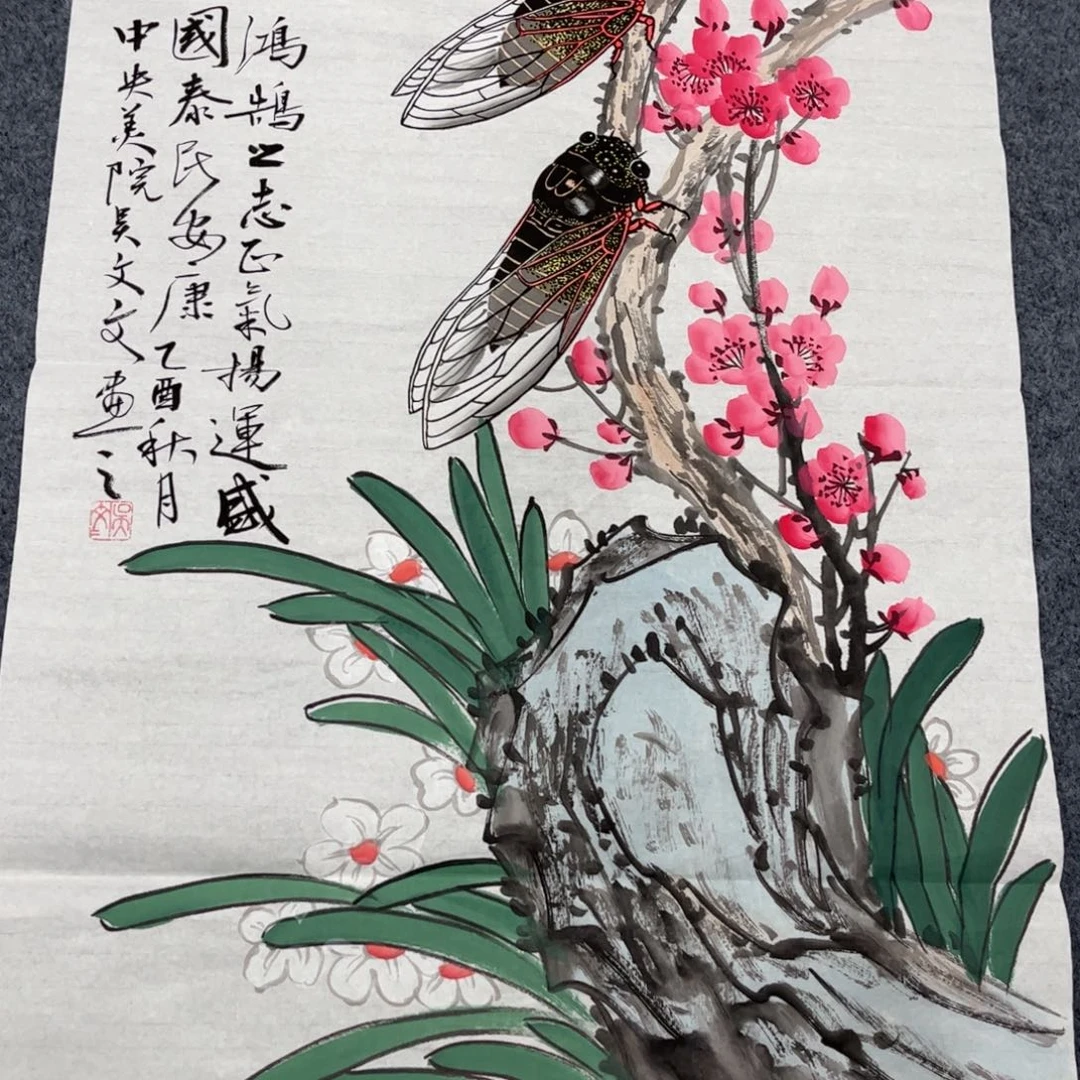 鴻鵠之志正氣揚運盛
國泰民安康乙酉秋月
中央美院吴文文画之
吴文